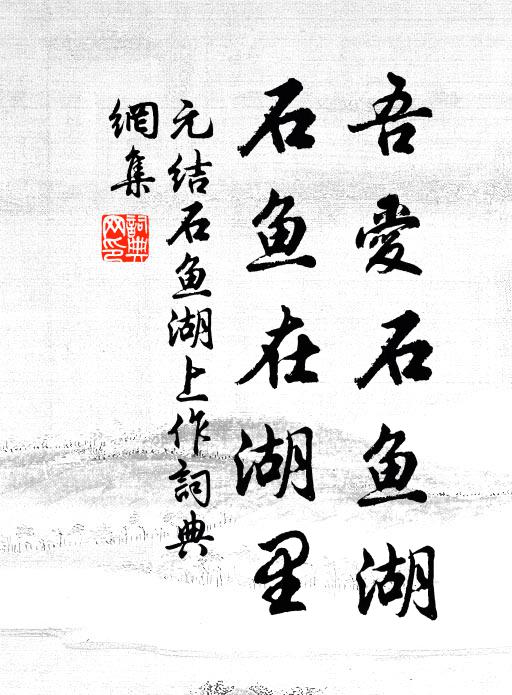 吾愛石鱼湖
石鱼在湖里
元结石鱼湖上作詞典
網集
詞典
网印